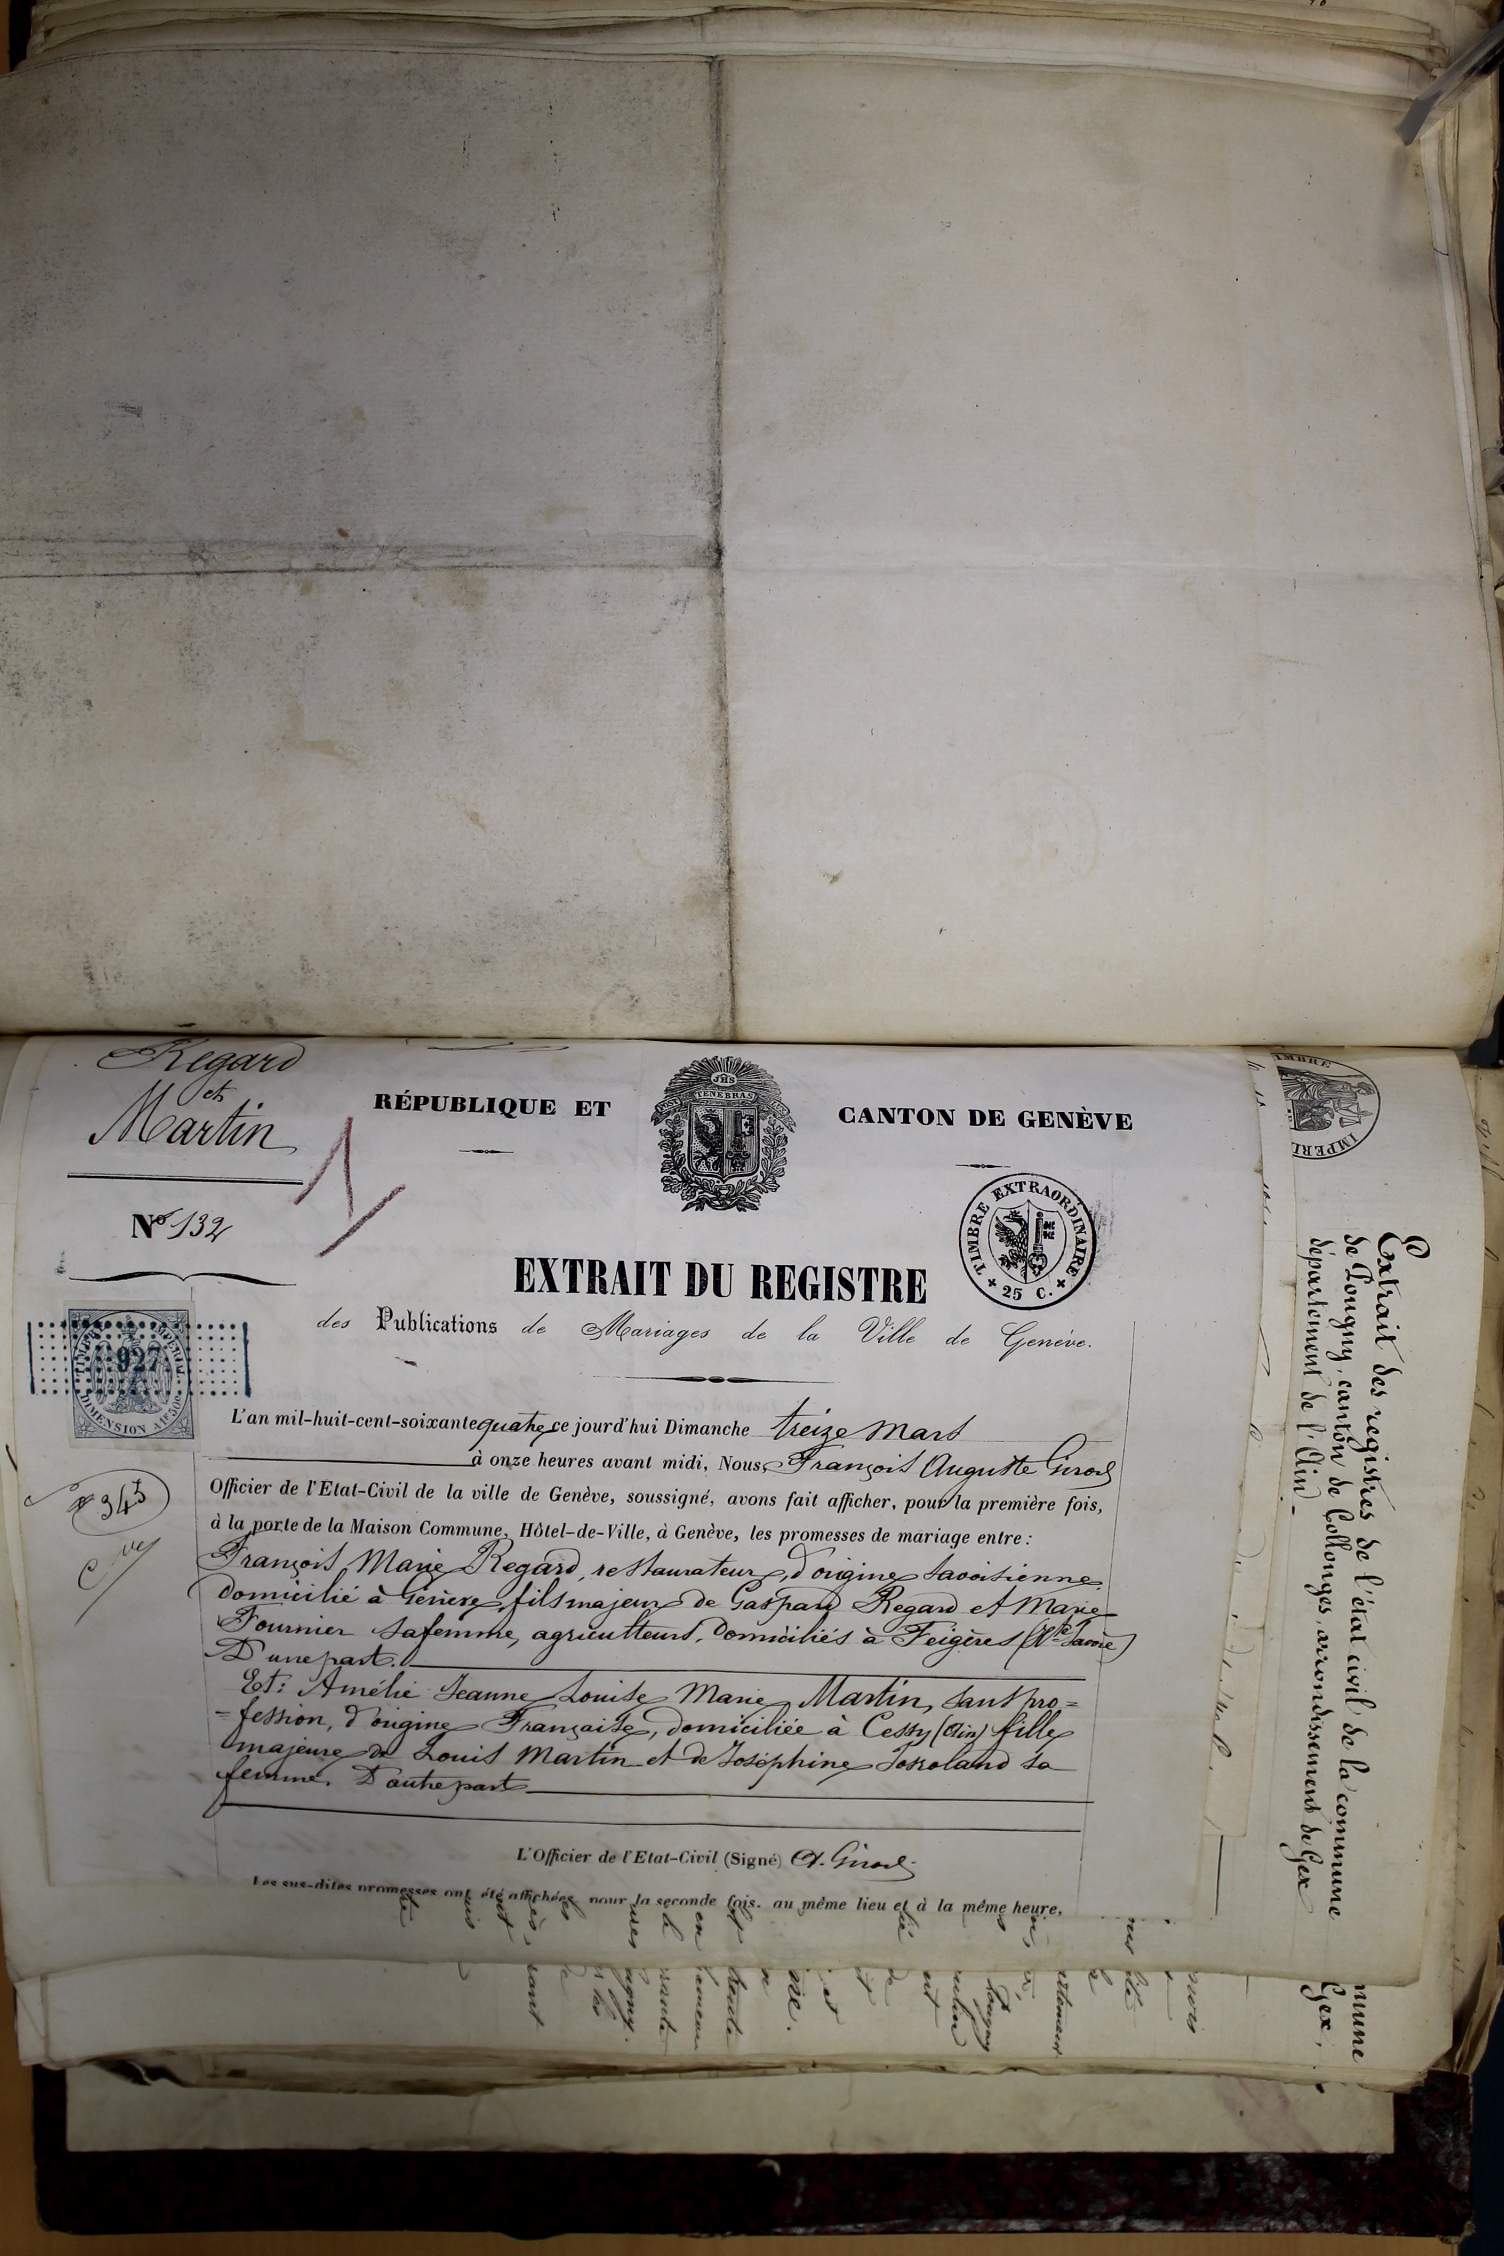 Regard
et
Martin
Nº 132
RÉPUBLIQUE ET
CANTON DE GENÈVE
JHS
POST TENEBRAS LUX
TIMBRE EXTRAORDINAIRE
25 C.
EXTRAIT DU REGISTRE
des Publications de Mariages de la Ville de Genève.
TIMBRE IMPERIAL
927
DIMENSION 1F 50C
343
L'an mil-huit-cent-soixante quatre ce jourd'hui Dimanche treize Mars
à onze heures avant midi, Nous, François Auguste Girod
Officier de l'Etat-Civil de la ville de Genève, soussigné, avons fait afficher, pour la première fois,
à la porte de la Maison Commune, Hôtel-de-Ville, à Genève, les promesses de mariage entre :
François Marie Regard, restaurateur, d'origine Savoisienne
domicilié à Genève, fils majeur de Gaspard Regard et Marie
Fournier sa femme, agriculteurs, domiciliés à Feigères (Hte Savoie)
D'une part.
Et: Amélie Jeanne Louise Marie Martin, sans pro=
=fession, d'origine Française, domiciliée à Cessy (Ain) fille
majeure de Louis Martin et de Joséphine Josroland sa
femme. D'autre part
L'Officier de l'Etat-Civil (Signé) A. Girod
Les sus-dites promesses ont été affichées pour la seconde fois, au même lieu et à la même heure,
Extrait des registres de l'état civil de la commune
de Pougny, canton de Collonges, arrondissement de Gex
département de l'Ain -
mune
Gex,